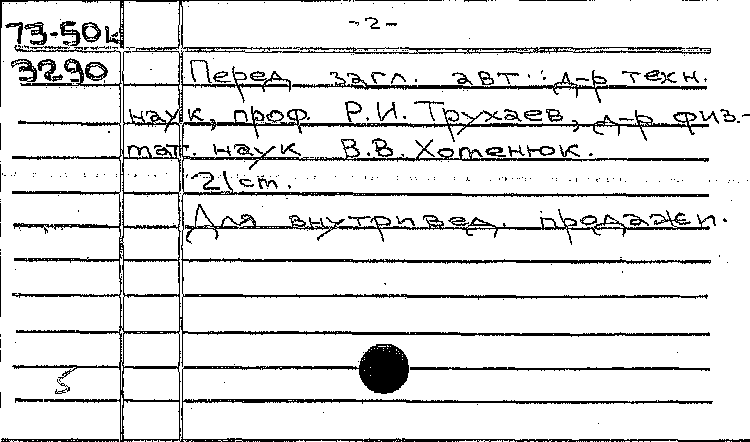 -2-
73-50к
3290
Перед загл. авт.: д-р техн.
наук, проф. Р.И. Трухаев, д-р физ.-
мат. наук В.В. Хоменюк.
21 ст.
Для внутривед. продажи.
5